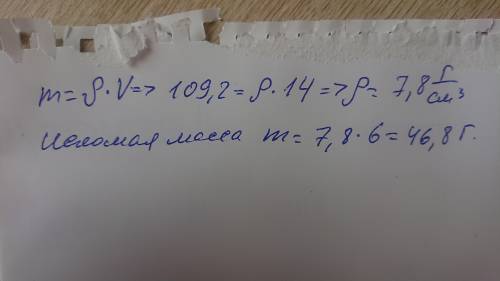 m = ρ · V => 109,2 = ρ · 14 => ρ = 7,8 г/см³
Искомая масса m = 7,8 · 6 = 46,8 г.